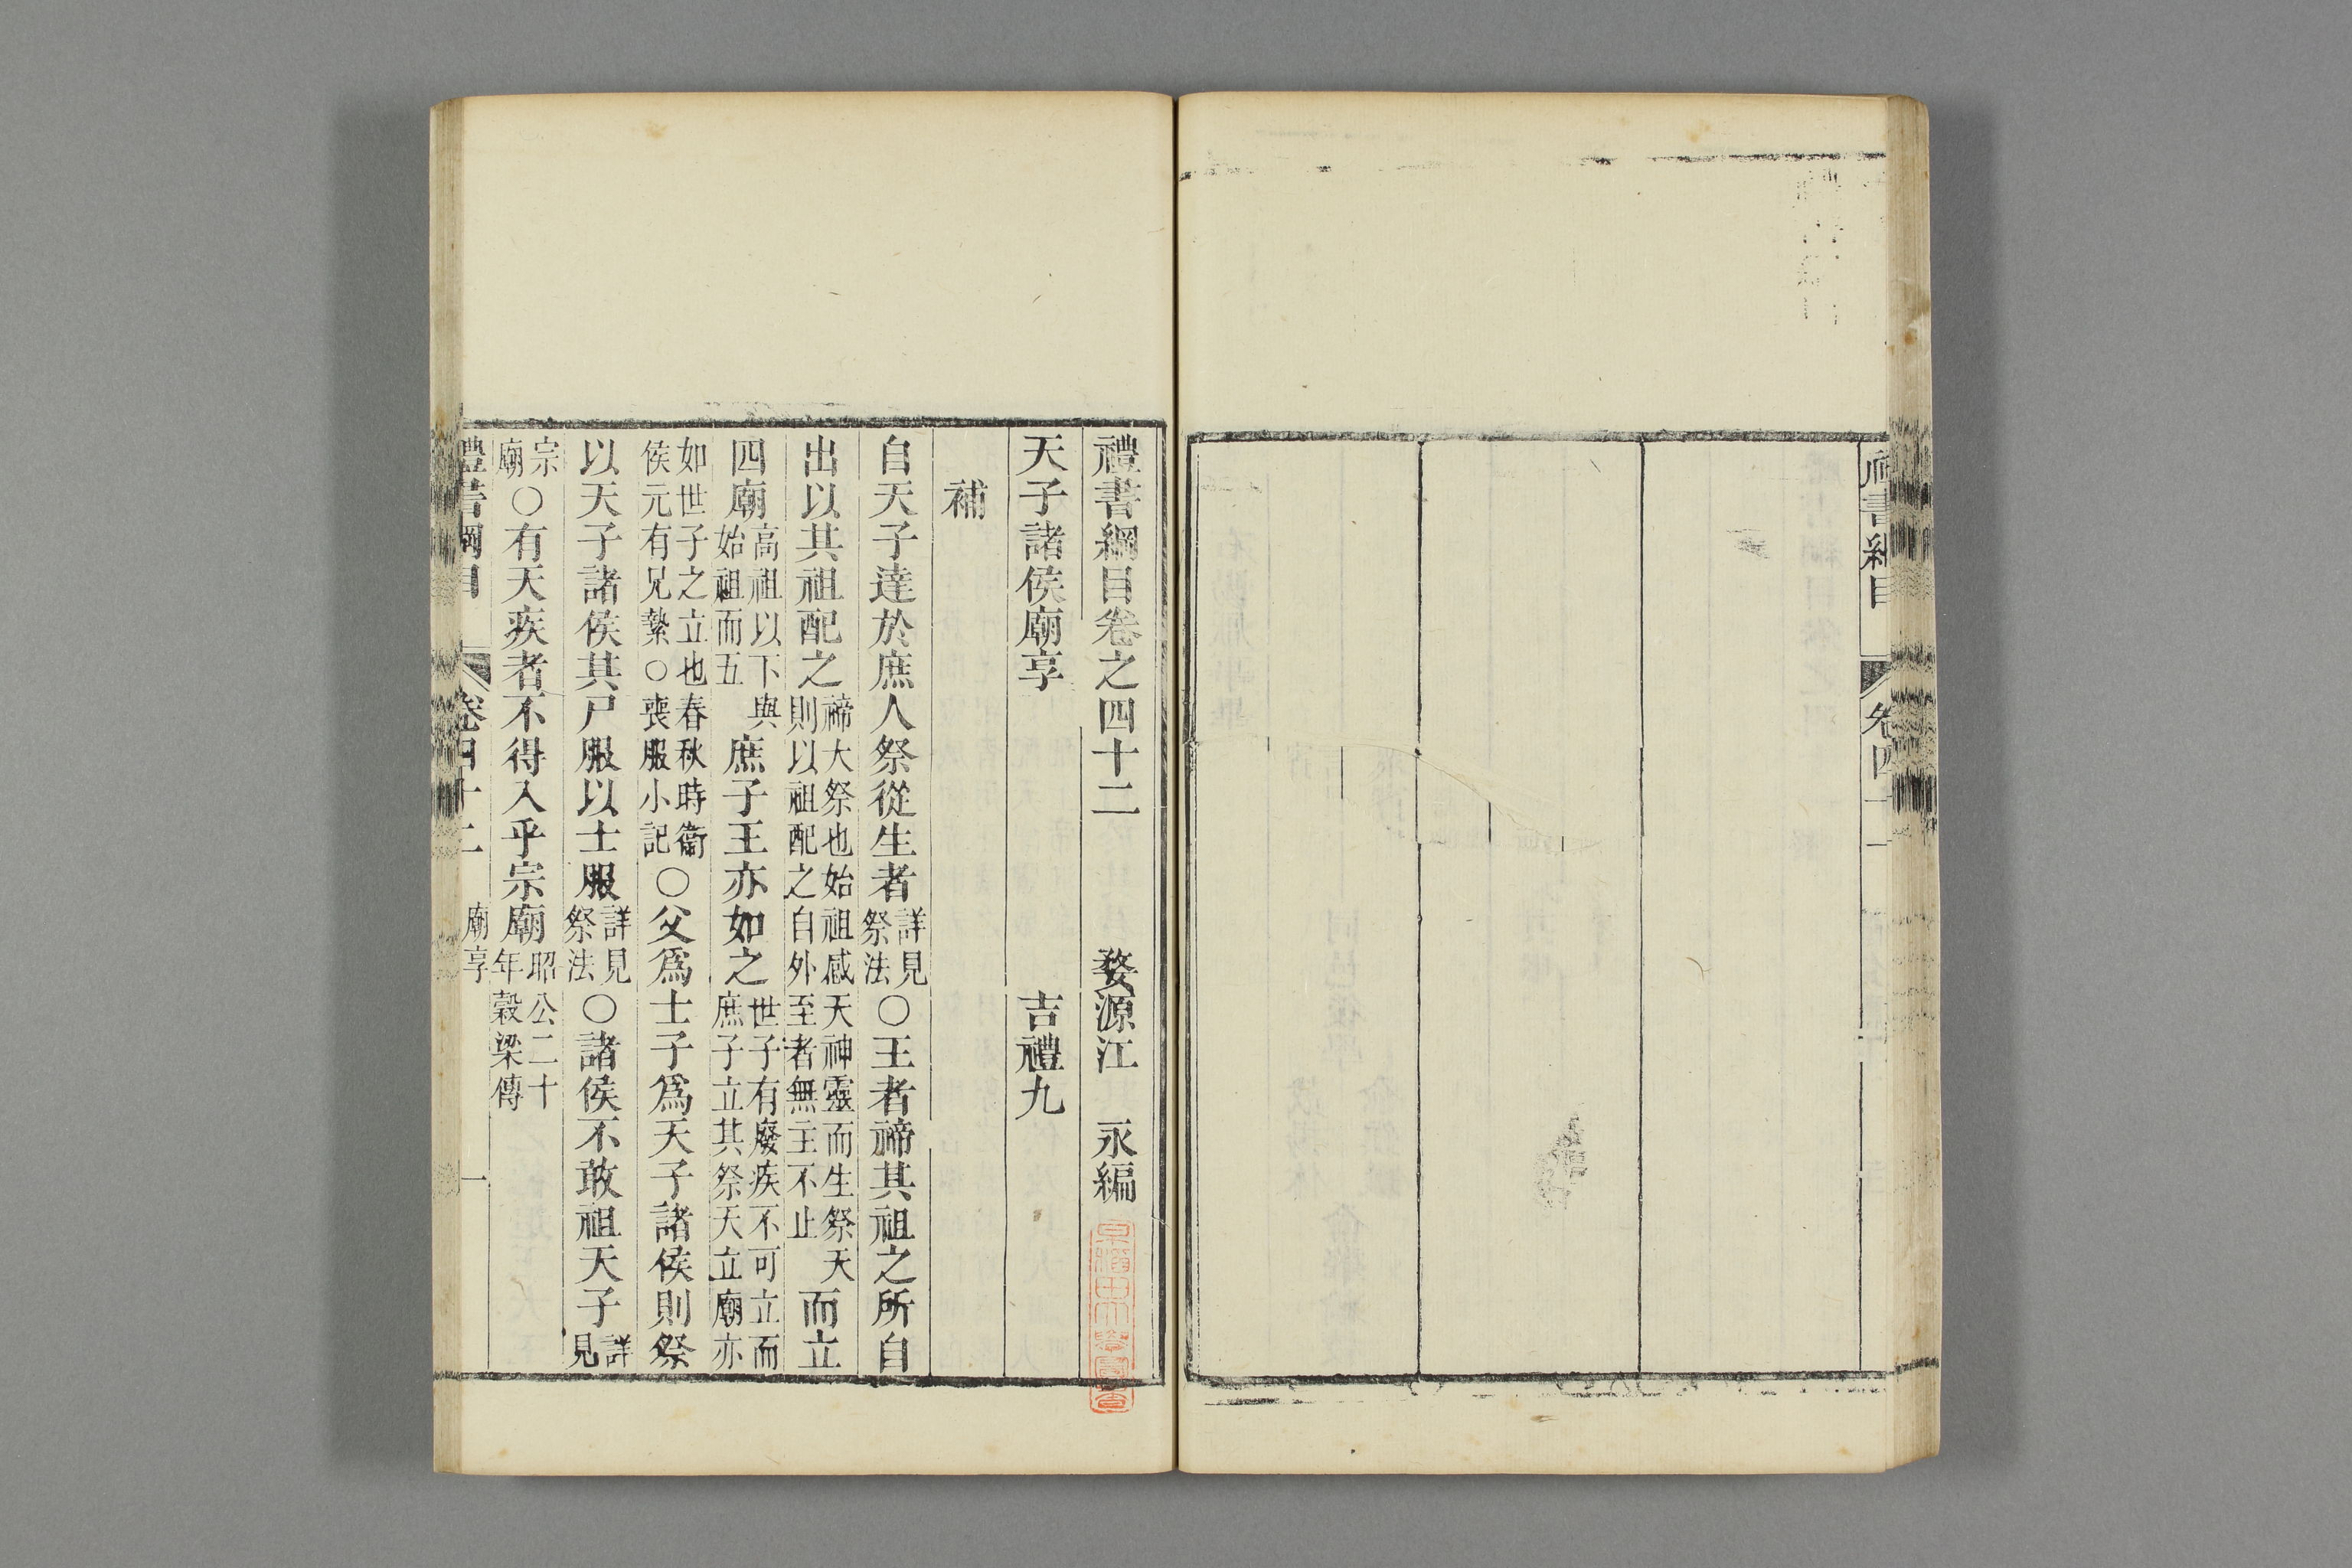 禮書綱目
卷四十一
禮書綱目卷之四十二
婺源江 永編
天子諸侯廟享
吉禮九
補
自天子達於庶人祭從生者詳見祭法○王者禘其祖之所自
出以其祖配之禘大祭也始祖感天神靈而生祭天則以祖配之自外至者無主不止而立
四廟高祖以下與始祖而五庶子王亦如之世子有廢疾不可立而庶子立其祭天立廟亦
如世子之立也春秋時衛侯元有兄縶○喪服小記○父爲士子爲天子諸侯則祭
以天子諸侯其尸服以士服詳見祭法○諸侯不敢祖天子詳見
宗廟○有天疾者不得入乎宗廟昭公二十年穀梁傳
禮書綱目
卷四十二
廟享
一
早稻田大學圖書